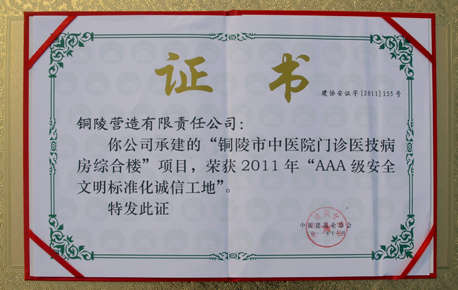 证书
建协安证字[2011]155号
铜陵营造有限责任公司：
你公司承建的“铜陵市中医院门诊医技病
房综合楼”项目，荣获2011年“AAA级安全
文明标准化诚信工地”。
特发此证